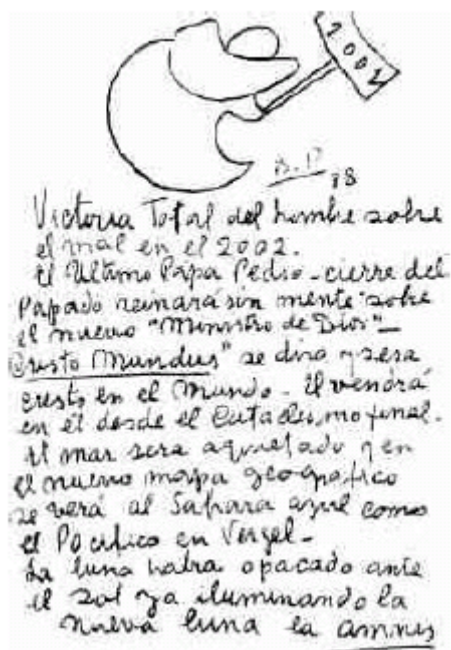 2002
B.P
38
Victoria Total del hombre sobre
el mal en el 2002.
El Ultimo Papa Pedro - cierre del
Papado reinará sin mente sobre
el nuevo "Ministro de Dios" -
Cristo Mundus" se dira y sera
cresto en el Mundo - El vendrá
en él desde el Cataclismo final.
El mar sera aquietado y en
el nuevo mapa geografico
se verá al Sahara azul como
el Pacifico en Vergel -
La luna habra opacado ante
el sol ya iluminando la
nueva luna la